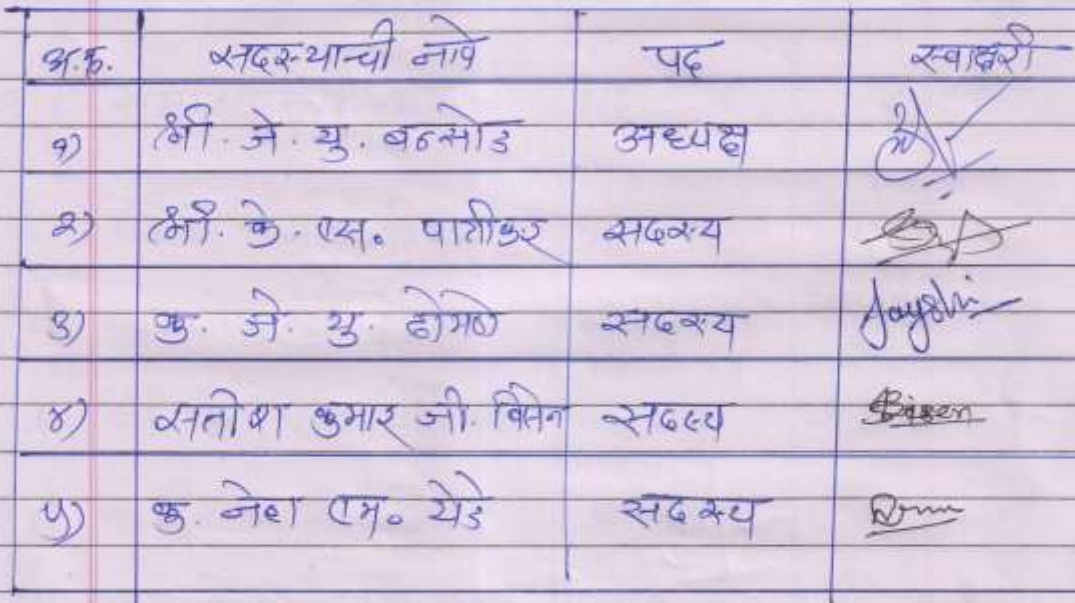 अ.क्र. सदस्याची नावे पद स्वाक्षरी
१) श्री. जे. यु. बन्सोड अध्यक्ष
२) श्री. के. एस. पातीकर सदस्य
३) कु. जे. यु. ढोमणे सदस्य Jayshri
४) सतोष कुमार जी. बिसेन सदस्य Bisen
५) कु. नेहा एम. येडे सदस्य